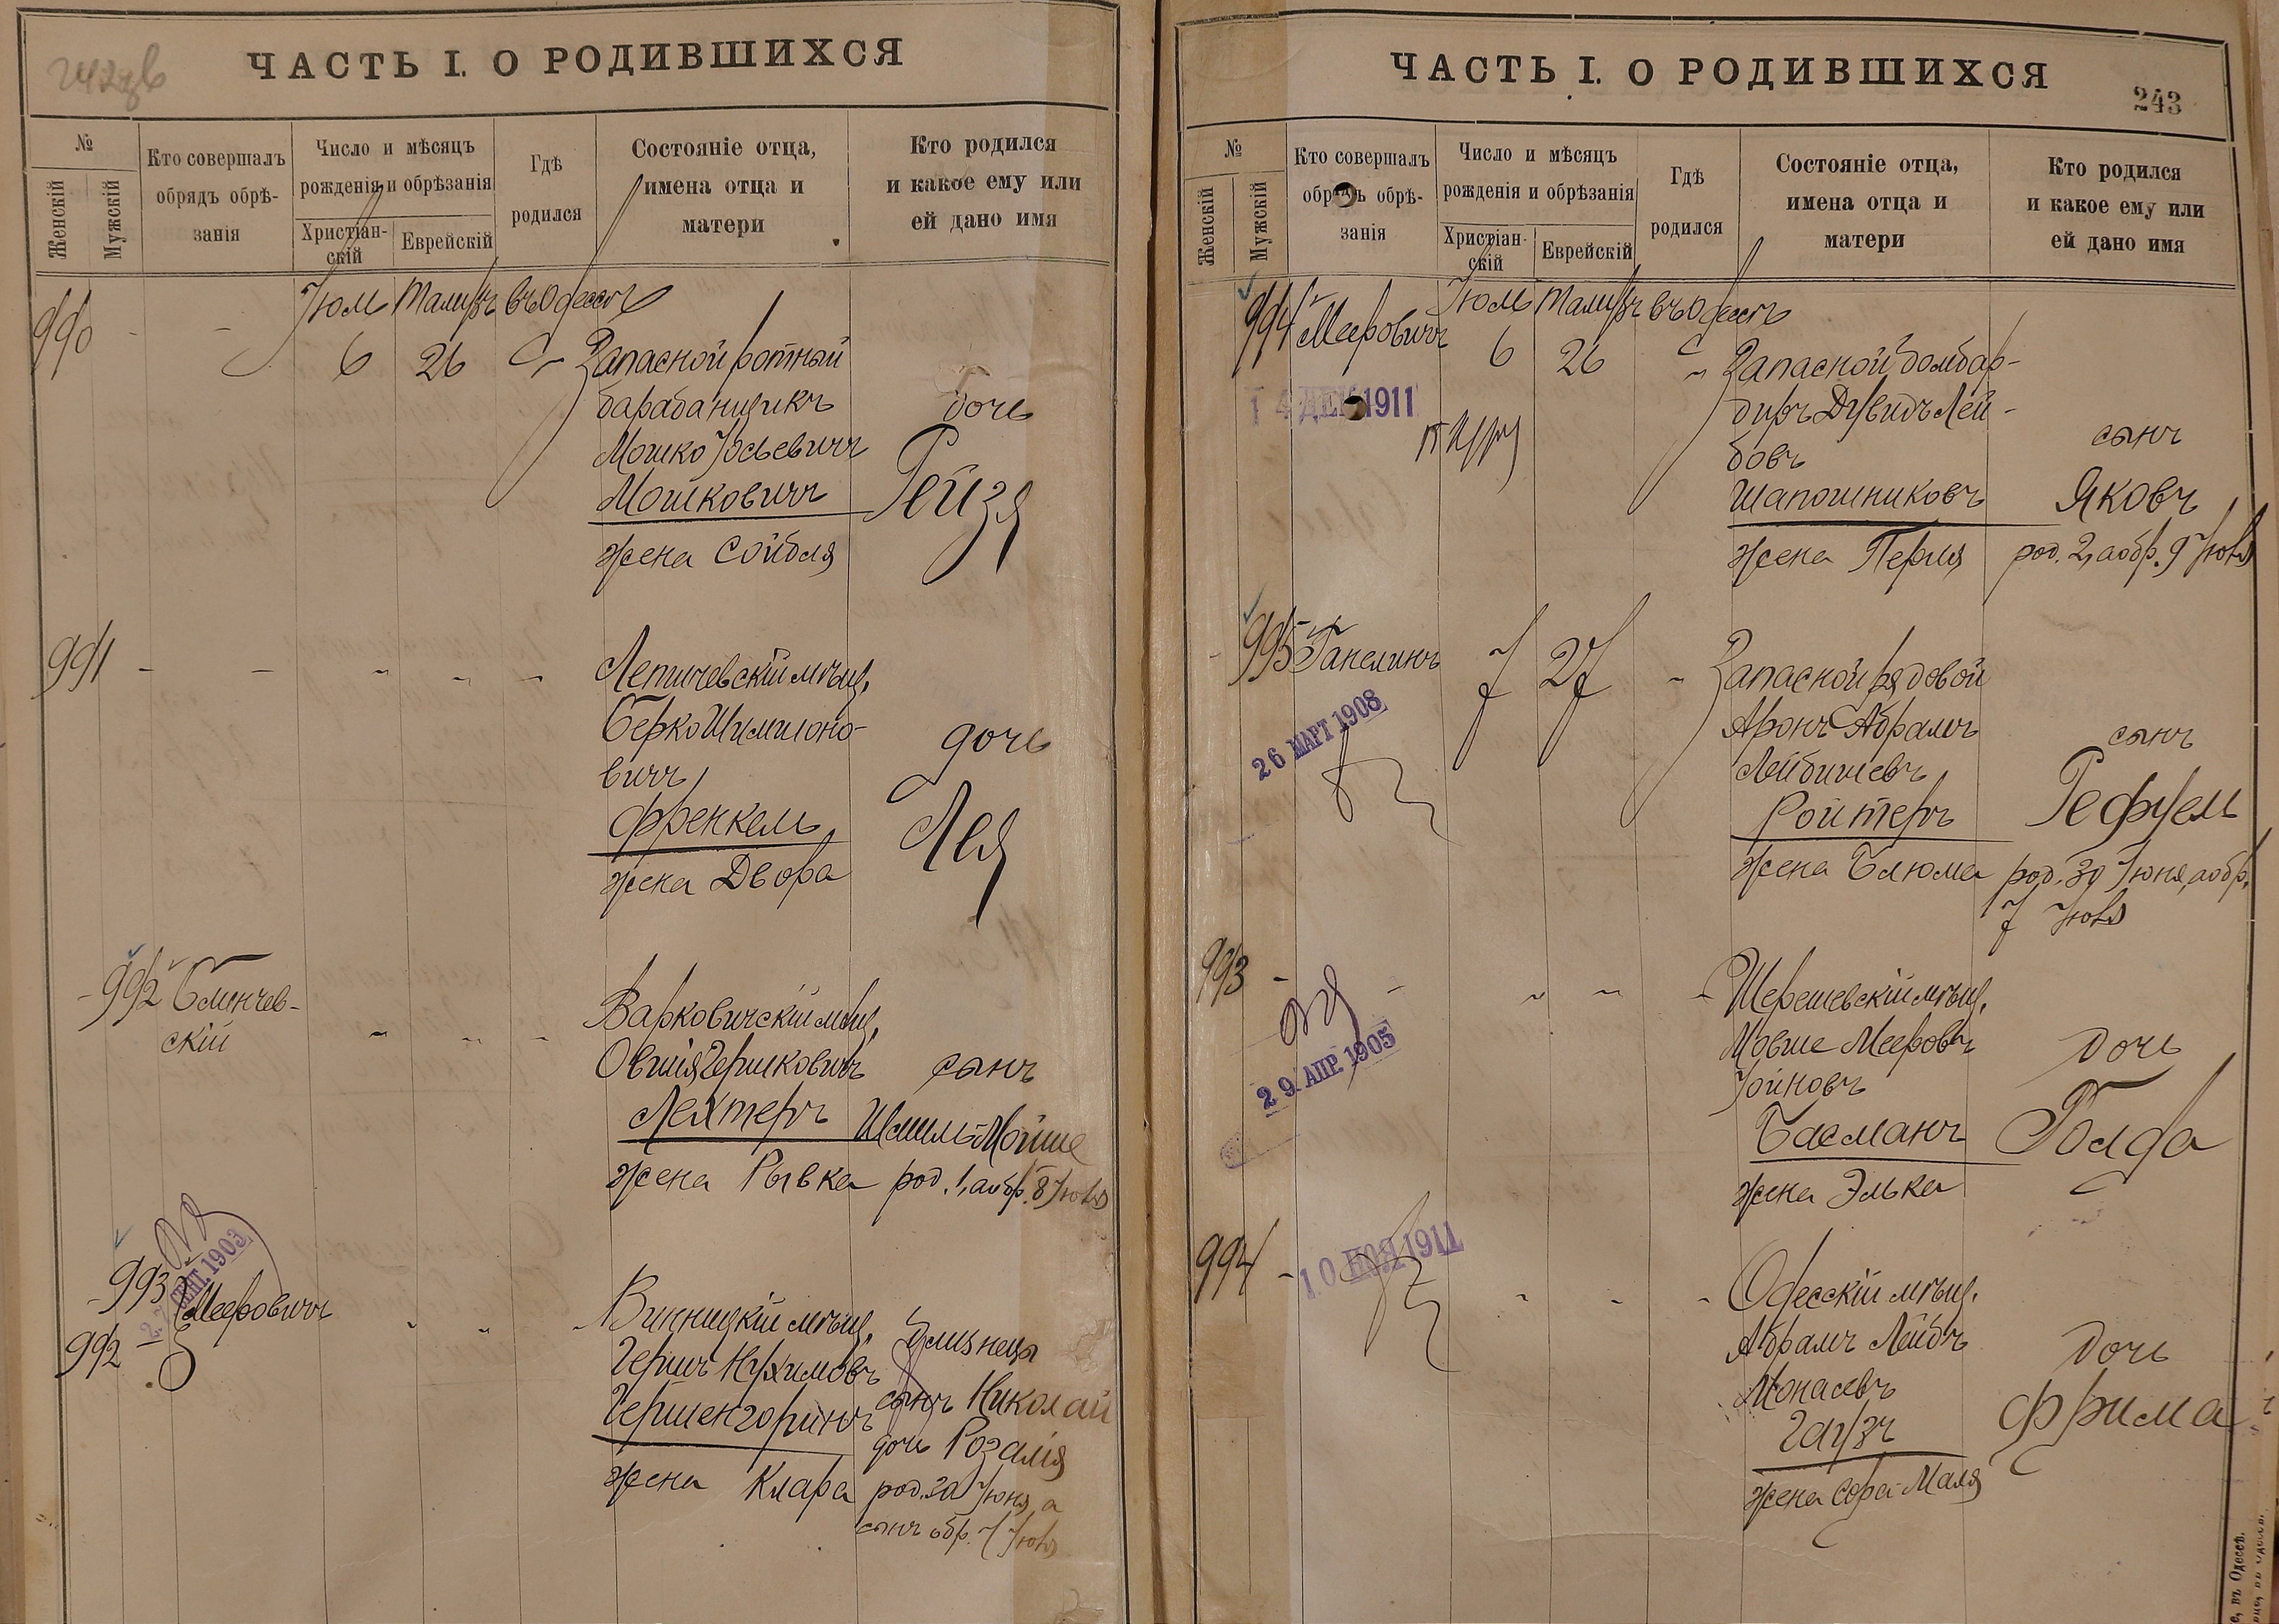 ЧАСТЬ I. О РОДИВШИХСЯ
№
Женскій
Мужскій
Кто совершалъ
обрядъ обрѣ-
занія
Число и мѣсяцъ
рожденія и обрѣзанія
Христіан-
скій
Еврейскій
Гдѣ
родился
Состояніе отца,
имена отца и
матери
Кто родился
и какое ему или
ей дано имя
Іюль Тамузъ въ Одессѣ
990 - -
6 26
Запасной ротный
барабанщикъ
Мошко Іосьевичъ
Мошковичъ
жена Сойбля
дочь
Рейзя
991 - -
Летичевскій мѣщ.
Берко Шимионо-
вичъ
Френкель
жена Двора
дочь
Лея
992
скій
Варковичскій мѣщ.
Овшія Гершковичъ
Лехтеръ
жена Рывка
сынъ
Шмиль-Мойше
род. 1, а обр. 8 Іюля
993 Мееровичъ
27 СЕНТ. 1903
992 -
Винницкій мѣщ.
Гершъ Нухимовъ
Гершенгоринъ
жена Клара
близнецы
сынъ Николай
дочь Розалія
род. 30 Іюня, а
сынъ обр. 7 Іюля
ЧАСТЬ I. О РОДИВШИХСЯ
243
№
Женскій
Мужскій
Кто совершалъ
обрядъ обрѣ-
занія
Число и мѣсяцъ
рожденія и обрѣзанія
Христіан-
скій
Еврейскій
Гдѣ
родился
Состояніе отца,
имена отца и
матери
Кто родился
и какое ему или
ей дано имя
Іюль Тамузъ въ Одессѣ
994 Мееровичъ
14 ДЕК 1911
6 26
Запасной бомбар-
диръ Дувидъ Лей-
бовъ
Шапошниковъ
жена Перля
сынъ
Яковъ
род. 2, а обр. 9 Іюля
995 Ганелинъ
26 МАРТ 1908
7 27
Запасной рядовой
Аронъ Абрамъ
Лейбишевъ
Ройтеръ
жена Блюма
сынъ
Рефуель
род. 30 Іюня, а обр.
7 Іюля
993 -
29 АПР. 1905
Шерешевскій мѣщ.
Мовше Мееровъ
Іойновъ
Басманъ
жена Элька
дочь
Голда
994 -
10 НОЯ 1911
Одесскій мѣщ.
Абрамъ Лейбъ
Монасевъ
Гаузъ
жена Сора-Маля
дочь
Фрима
е, въ Одессѣ.